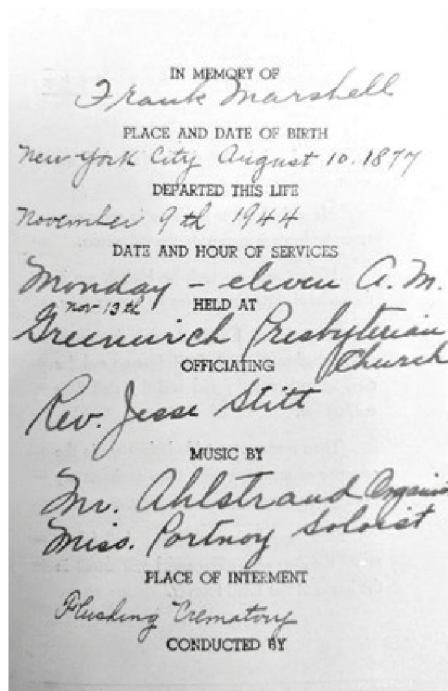 IN MEMORY OF
Frank Marshall
PLACE AND DATE OF BIRTH
New York City August 10. 1877
DEPARTED THIS LIFE
November 9th 1944
DATE AND HOUR OF SERVICES
Monday – eleven A.M.
Nov 13th
HELD AT
Greenwich Presbyterian
Church
OFFICIATING
Rev. Jesse Stitt
MUSIC BY
Mr. Ahlstrand Organist
Miss. Portnoy Soloist
PLACE OF INTERMENT
Flushing Crematory
CONDUCTED BY